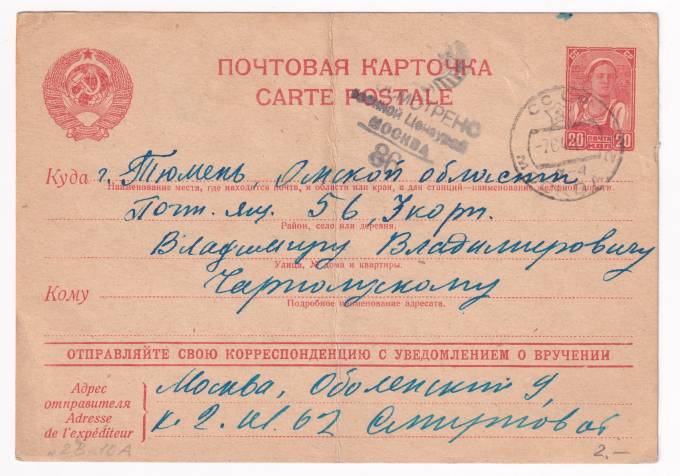 ПОЧТОВАЯ КАРТОЧКА
CARTE POSTALE
ПРОСМОТРЕНО
Военной Цензурой
МОСКВА
20 ПОЧТА КОП. 20
Куда г. Тюмень, Омской области
Наименование места, где находится почта, и области или края, а для станций—наименование железной дороги.
Почт. ящ. 56,
Район, село или деревня.
Владимиру Владимировичу
Улица, № дома и квартиры.
Кому
Подробное наименование адресата.
ОТПРАВЛЯЙТЕ СВОЮ КОРРЕСПОНДЕНЦИЮ С УВЕДОМЛЕНИЕМ О ВРУЧЕНИИ
Адрес отправителя
Adresse de l'expéditeur
Москва, Оболенский 9,
к. 2 кв. 62
2.—